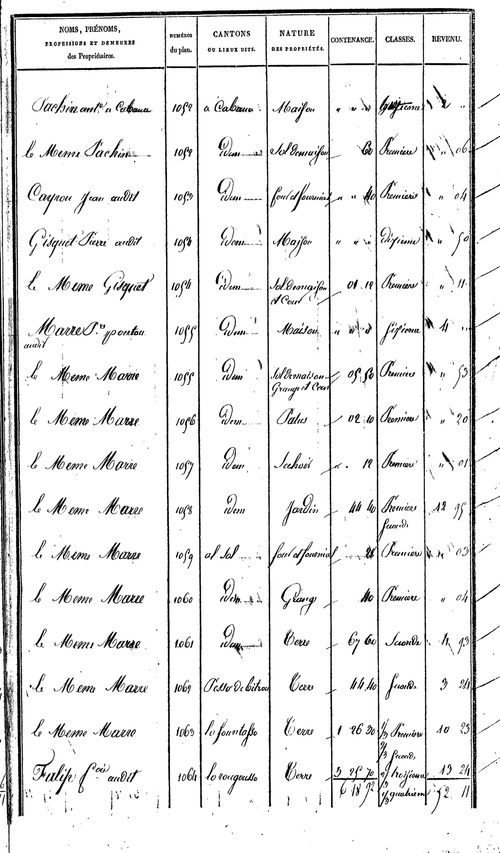 NOMS, PRÉNOMS, PROFESSIONS ET DEMEURES des Propriétaires. NUMÉROS du plan. CANTONS OU LIEUX DITS. NATURE DES PROPRIÉTÉS. CONTENANCE. CLASSES. REVENU.
1052 a Cabanes Maison " " " 2 "
le Meme Pachin 1052 idem Sol de maison 60 Premiere " 06
Cayrou Jean audit 1053 idem four et fournial " 40 Premiere " 04
Gisquet Pierre audit 1054 idem Maison " " " dixieme " 50
le Meme Gisquet 1054 idem Sol de maison et Cour 01 12 Premiere " 11
Marre audit 1055 idem Maison " " " 4 "
le Meme Marre 1055 idem Sol de maison Grange et Cour 05 50 Premiere " 53
le Meme Marre 1056 idem Patus 02 10 Premiere " 20
le Meme Marre 1057 idem Sechoir " 12 Premiere " 01
le Meme Marre 1058 idem Jardin 44 40 Premiere Seconde 12 95
le Meme Marre 1059 al sol four et fournial 28 Premiere " 03
le Meme Marre 1060 idem Grange 40 Premiere " 04
le Meme Marre 1061 idem Terre 67 60 Seconde 4 93
le Meme Marre 1062 Terre 44 40 Seconde 3 24
le Meme Marre 1063 Terre 1 26 20 1/3 Premiere 2/3 Seconde 10 23
Falip audit 1064 Terre 3 25 70 troisieme quatrieme 13 24
6 18 92 52 11